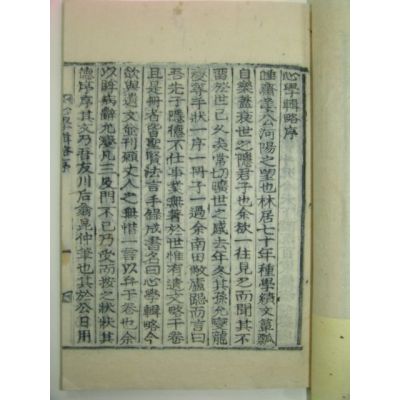 心學輯略序
睡齋姜公河陽之望也林居七十年種學績文簞瓢
自樂蓋衰世之隱君子也余欲一往見之而聞其不
留於世已久矣常切曠世之感去年冬其孫允龍
手狀一序一冊子一過余南田敝廬而言曰
吾先子隱德不仕事業無著於世惟有遺文略干卷
且是冊者皆聖賢法言手錄成書名曰心學輯略今
欲與遺文並刊願丈人之無惜一言以弁于卷也余
以眊病辭允凡三及門不已乃受而按之狀狀其
德序序其文乃吾友川后翁昆仲筆也其於公日用